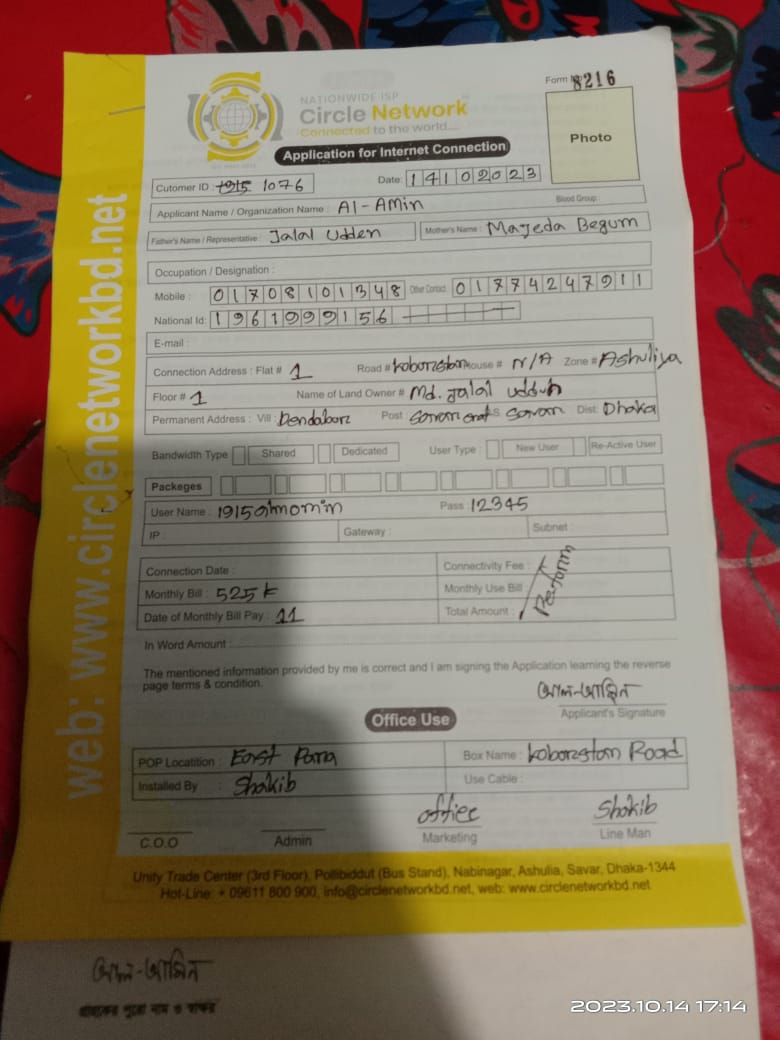 Form № 8216
NATIONWIDE ISP
Circle Network
Connected to the world....
Photo
Application for Internet Connection
Cutomer ID : 1915 1076 Date: 14102023
Applicant Name / Organization Name : Al-Amin Blood Group :
Father's Name / Representative : Jalal Udden Mother's Name : Majeda Begum
Occupation / Designation :
Mobile : 01708101348 Other Contact: 01774247911
National Id: 1961999156
E-mail :
Connection Address : Flat # 1 Road # koborestan House # N/A Zone # Ashuliya
Floor # 1 Name of Land Owner # Md. Jalal Uddun
Permanent Address : Vill : Dendabor Post Savar Savar Dist: Dhaka
Bandwidth Type Shared Dedicated User Type : New User Re-Active User
Packeges
User Name : 1915almomin Pass 12345
IP : Gateway : Subnet
Connection Date : Connectivity Fee :
Monthly Bill : 525 Monthly Use Bill
Date of Monthly Bill Pay : 11 Total Amount :
In Word Amount :
The mentioned information provided by me is correct and I am signing the Application learning the reverse
page terms & condition.
আল-আমিন
Applicant's Signature
Office Use
POP Locatition : East Para Box Name : koborestan Road
Installed By : Shakib Use Cable :
office Shakib
C.O.O Admin Marketing Line Man
Unity Trade Center (3rd Floor), Pollibiddut (Bus Stand), Nabinagar, Ashulia, Savar, Dhaka-1344
Hot-Line: + 09611 800 900, info@circlenetworkbd.net, web: www.circlenetworkbd.net
web: www.circlenetworkbd.net
আল-আমিন
গ্রাহকের পুরো নাম ও স্বাক্ষর
2023.10.14 17:14